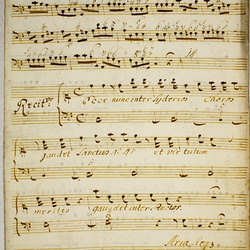 Recit:vo
Peer nunc inter sydereos Choros
gaudet Sanctus N: N: et vir tutum
merites gaudet inter Auctor.
Aria segr